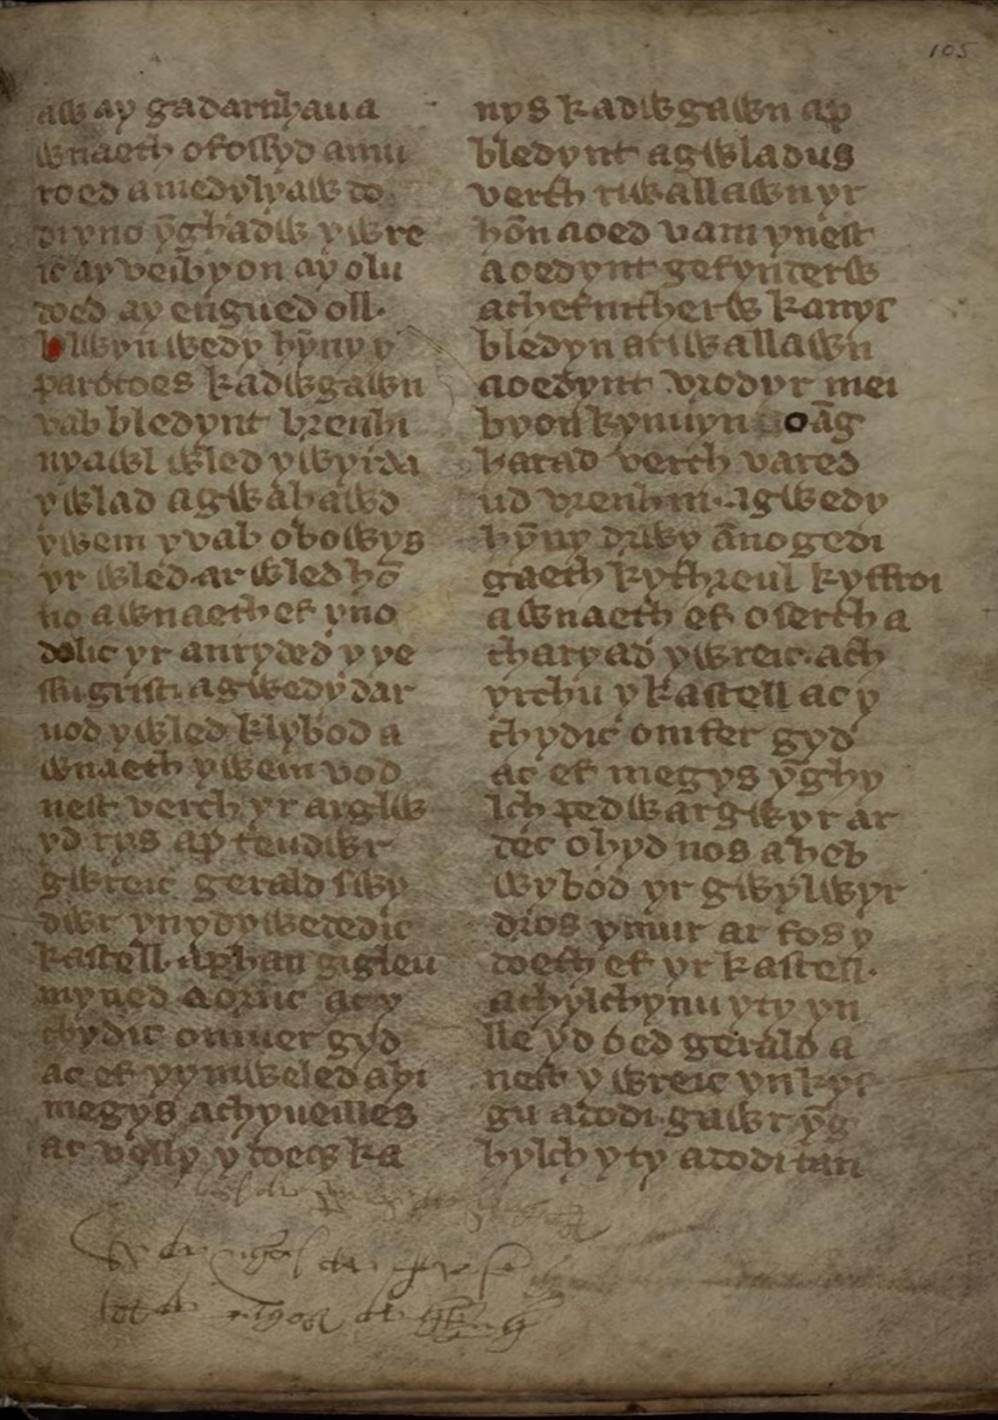 105
aỽ ay gadarnhau a
ỽnaeth o fossyd a mu
roed a medylyaỽ do
di yno yghadỽ y ỽre
ic ay veibyon ay olu
doed ay engued oll.
blỽyn ỽedy hyny y
parotoes kadỽgaỽn
vab bledynt brenhi
nyaỽl ỽled y ỽyrda
y ỽlad a gỽahaỽd
yỽein y vab o boỽys
yr ỽled. ar ỽled hō
no a ỽnaeth ef yno
dolic yr anryded y ye
ssu grist. a gỽedy dar
uod y ỽled klybod a
ỽnaeth yỽein vod
nest verch yr arglỽ
yd rys ap teudỽr
gỽreic gerald sỽy
dỽr yn y dyỽededic
kastell. a phan gigleu
myned a oruc ac y
chydic o niuer gyd
ac ef y ymỽeled a hi
megys a chyueilles
ac velly y doeth ka
nys kadỽgaỽn ap
bledynt a gỽladus
verch riỽallaỽn yr
hōn a oed vam y nest
a oedynt gefynderỽ
a chefnitherỽ kanys
bledyn a riỽallaỽn
a oedynt vrodyr mei
byon kynuyn o āg
harad verch vared
ud vrenhin. a gỽedy
hȳny drỽy ānogedi
gaeth kythreul kyffroi
a ỽnaeth ef o serch a
charyad y ỽreic. ach
yrchu y kastell ac y
chydic o nifer gyd
ac ef megys ȳghy
lch pedỽar gỽyr ar
dec o hyd nos a heb
ỽybod yr gỽylỽyr
dros y mur ar fos y
doeth ef yr kastell.
a chylchynu y ty yn
lle yd oed gerald a
nest y ỽreic yn kys
gu a dodi gaỽr yg
hylch y ty a dodi tan